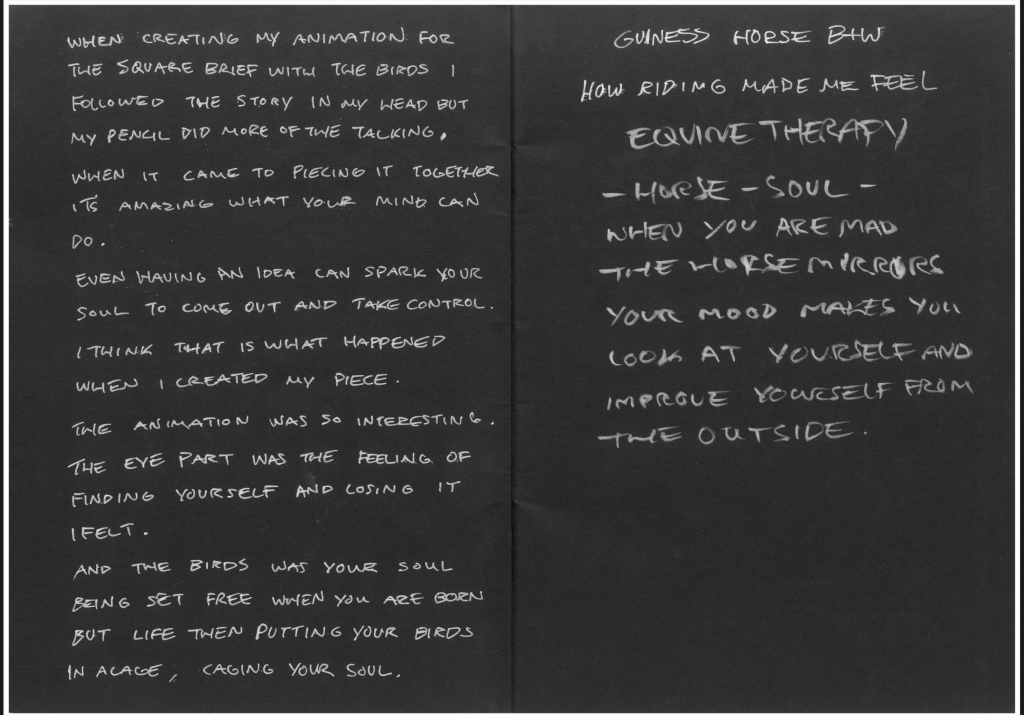 WHEN CREATING MY ANIMATION FOR
THE SQUARE BRIEF WITH THE BIRDS I
FOLLOWED THE STORY IN MY HEAD BUT
MY PENCIL DID MORE OF THE TALKING.
WHEN IT CAME TO PIECING IT TOGETHER
IT'S AMAZING WHAT YOUR MIND CAN
DO.
EVEN HAVING AN IDEA CAN SPARK YOUR
SOUL TO COME OUT AND TAKE CONTROL.
I THINK THAT IS WHAT HAPPENED
WHEN I CREATED MY PIECE.
THE ANIMATION WAS SO INTERESTING.
THE EYE PART WAS THE FEELING OF
FINDING YOURSELF AND LOSING IT
I FELT.
AND THE BIRDS WAS YOUR SOUL
BEING SET FREE WHEN YOU ARE BORN
BUT LIFE THEN PUTTING YOUR BIRDS
IN A CAGE, CAGING YOUR SOUL.
GUINESS HORSE B+W
HOW RIDING MADE ME FEEL
EQUINE THERAPY
- HORSE - SOUL -
WHEN YOU ARE MAD
THE HORSE MIRRORS
YOUR MOOD MAKES YOU
LOOK AT YOURSELF AND
IMPROVE YOURSELF FROM
THE OUTSIDE.